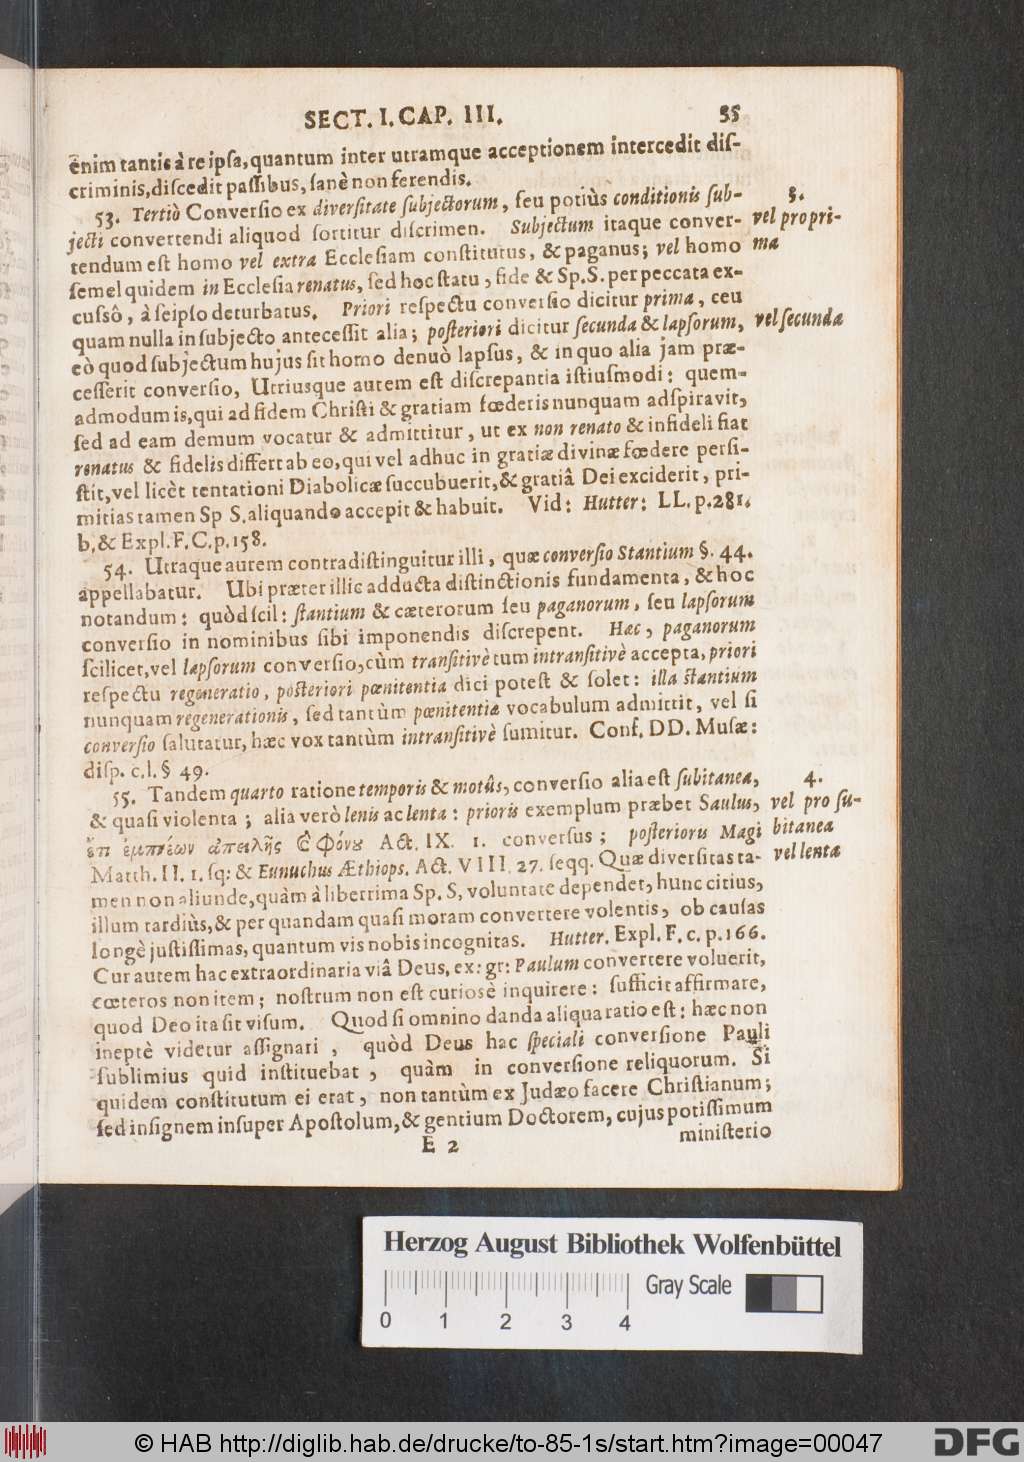 SECT. I. CAP. III. 55
enim tantis à re ipsa, quantum inter utramque acceptionem intercedit dis-
criminis, discedit passibus, sanè non ferendis.
53. Tertiò Conversio ex diversitate subjectorum, seu potiùs conditionis sub-
jecti convertendi aliquod sortitur discrimen. Subjectum itaque conver-
tendum est homo vel extra Ecclesiam constitutus, & paganus; vel homo
semel quidem in Ecclesia renatus, sed hoc statu, fide & Sp. S. per peccata ex-
cussô, à seipso deturbatus. Priori respectu conversio dicitur prima, ceu
quam nulla in subjecto antecessit alia; posteriori dicitur secunda & lapsorum,
eò quod subjectum hujus sit homo denuò lapsus, & in quo alia jam præ-
cesserit conversio, Utriusque autem est discrepantia istiusmodi: quem-
admodum is, qui ad fidem Christi & gratiam fœderis nunquam adspiravit,
sed ad eam demum vocatur & admittitur, ut ex non renato & infideli fiat
renatus & fidelis differt ab eo, qui vel adhuc in gratiæ divinæ fœdere persi-
stit, vel licèt tentationi Diabolicæ succubuerit, & gratiâ Dei exciderit, pri-
mitias tamen Sp S. aliquando accepit & habuit. Vid: Hutter: LL. p. 281.
b, & Expl. F. C. p. 158.
54. Utraque autem contradistinguitur illi, quæ conversio Stantium §. 44.
appellabatur. Ubi præter illic adducta distinctionis fundamenta, & hoc
notandum: quòd scil: stantium & cæterorum seu paganorum, seu lapsorum
conversio in nominibus sibi imponendis discrepent. Hæc, paganorum
scilicet, vel lapsorum conversio, cùm transitivè tum intransitivè accepta, priori
respectu regeneratio, posteriori pœnitentia dici potest & solet: illa stantium
nunquam regenerationis, sed tantùm pœnitentia vocabulum admittit, vel si
conversio salutatur, hæc vox tantùm intransitivè sumitur. Conf. DD. Musæ:
disp. c. l. § 49.
55. Tandem quarto ratione temporis & motûs, conversio alia est subitanea,
& quasi violenta; alia verò lenis ac lenta: prioris exemplum præbet Saulus,
ἔτι ἐμπνέων ἀπειλῆς & φόνου Act. IX. 1. conversus; posterioris Magi
Matth. II. 1. sq: & Eunuchus Æthiops. Act. VIII. 27. seqq. Quæ diversitas ta-
men non aliunde, quàm à liberrima Sp. S, voluntate dependet, hunc citius,
illum tardiùs, & per quandam quasi moram convertere volentis, ob causas
longè justissimas, quantum vis nobis incognitas. Hutter. Expl. F. c. p. 166.
Cur autem hac extraordinaria viâ Deus, ex: gr: Paulum convertere voluerit,
cœteros non item; nostrum non est curiosè inquirere: sufficit affirmare,
quod Deo ita sit visum. Quod si omnino danda aliqua ratio est: hæc non
ineptè videtur assignari, quòd Deus hac speciali conversione Pauli
sublimius quid instituebat, quàm in conversione reliquorum. Si
quidem constitutum ei erat, non tantùm ex Judæo facere Christianum;
sed insignem insuper Apostolum, & gentium Doctorem, cujus potissimum
E 2 ministerio
3.
vel propri-
ma
vel secunda
4.
vel pro su-
bitanea
vel lenta
Herzog August Bibliothek Wolfenbüttel
Gray Scale
0 1 2 3 4
© HAB http://diglib.hab.de/drucke/to-85-1s/start.htm?image=00047
DFG